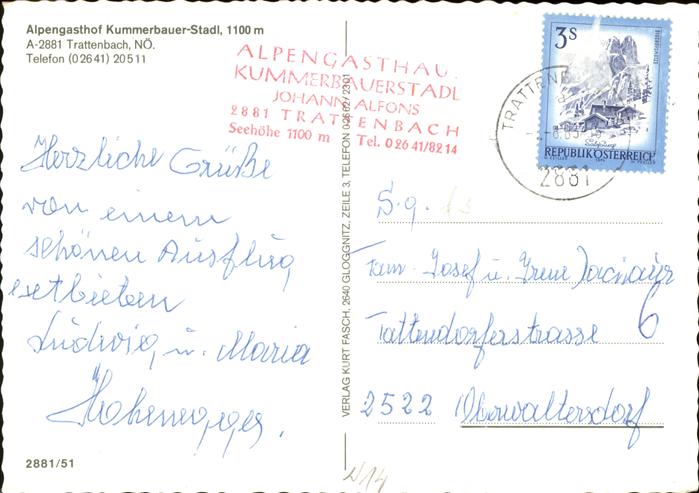 Alpengasthof Kummerbauer-Stadl, 1100 m
A-2881 Trattenbach, NÖ.
Telefon (02641) 20511
ALPENGASTHAU
KUMMERBAUERSTADL
JOHANN ALFONS
2881 TRATTENBACH
Seehöhe 1100 m Tel. 02641/8214
3S
REPUBLIK ÖSTERREICH
TRATTENB
2881
Herzliche Grüße
von einem
schönen Ausflug
entbieten
Ludwig u. Maria
VERLAG KURT FASCH, 2640 GLOGGNITZ, ZEILE 3, TELEFON 02662/2301
S.g.
Fam. Josef u. Irene
Tattendorferstrasse 6
2522 Oberwaltersdorf
2881/51
N14